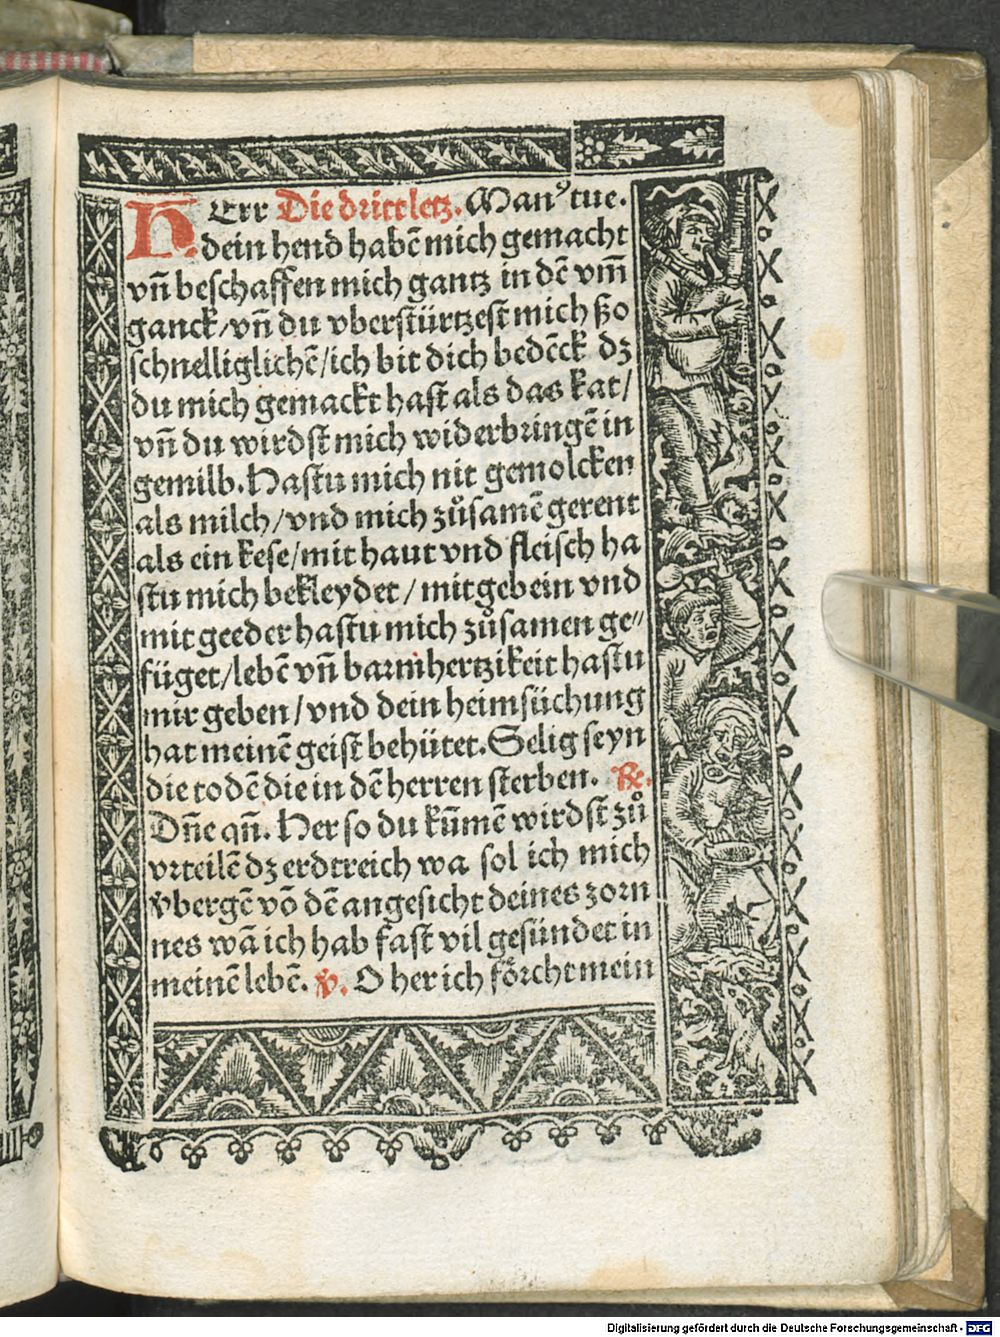 HErr Die drit letz. Manꝰ tue.
dein hend habē mich gemacht
vn̄ beschaffen mich gantz in dē vm̄
ganck/vn̄ du vberstürtzest mich ßo
schnelliglichē/ich bit dich bedēck dz
du mich gemackt hast als das kat/
vn̄ du wirdst mich widerbringē in
gemilb. Hastu mich nit gemolcken
als milch/vnd mich zůsamē gerent
als ein kese/mit haut vnd fleisch ha
stu mich bekleydet/mit gebein vnd
mit geeder hastu mich zůsamen ge⸗
füget/lebē vn̄ barmhertzikeit hastu
mir geben/vnd dein heimsüchung
hat meinē geist behütet. Selig seyn
die todē die in dē herren sterben. ℟.
Dn̄e qn̄. Her so du kūmē wirdst zů
vrteilē dz erdtreich wa sol ich mich
vbergē vō dē angesicht deines zorn
nes wā ich hab fast vil gesündet in
meinē lebē. ℣. O her ich förcht mein
Digitalisierung gefördert durch die Deutsche Forschungsgemeinschaft - DFG